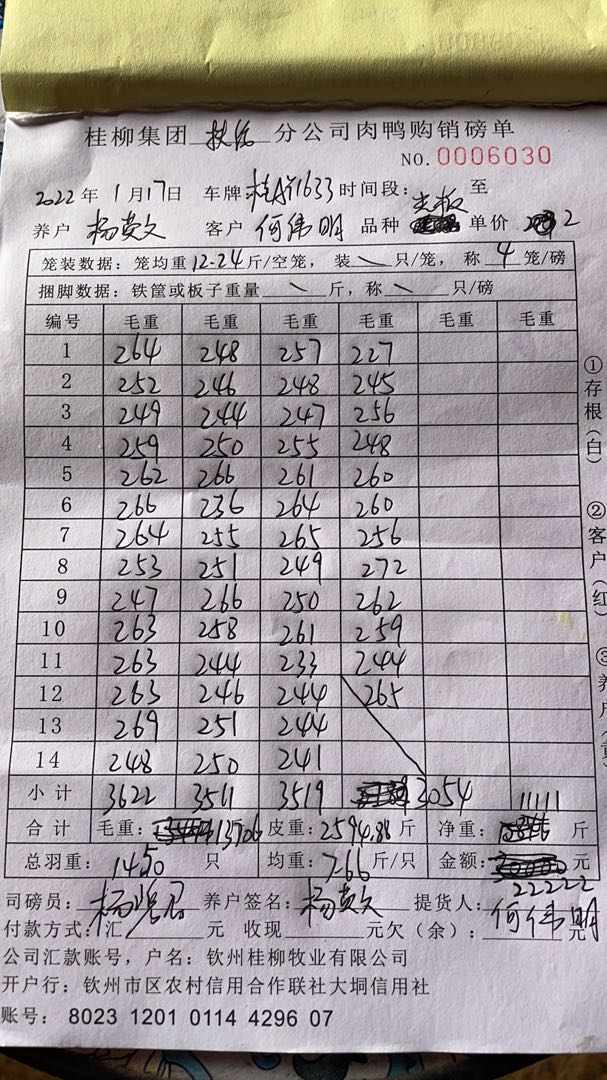 桂柳集团 扶伍 分公司肉鸭购销磅单
NO.0006030
2022年 1月17日 车牌:桂A91633 时间段: 至
养户 杨黄文 客户 何伟明 品种 光板 单价 2
笼装数据：笼均重12.24斤/空笼，装 \ 只/笼，称 4 笼/磅
捆脚数据：铁筐或板子重量 \ 斤，称 \ 只/磅
编号 毛重 毛重 毛重 毛重 毛重 毛重
1 264 248 257 227
2 252 246 248 245
3 249 244 247 256
4 259 250 255 248
5 262 266 261 260
6 266 236 264 260
7 264 255 265 256
8 253 251 249 272
9 247 266 250 262
10 263 258 261 259
11 263 244 233 244
12 263 246 244 265
13 269 251 244
14 248 250 241
小计 3622 3511 3519 3054
合计 毛重: 13706 皮重: 2594.88 斤 净重: 11111 斤
总羽重: 1450 只 均重: 7.66 斤/只 金额: 22222 元
司磅员: 养户签名: 杨黄文 提货人: 何伟明
付款方式:汇 元 收现 元欠（余）: 元
公司汇款账号，户名：钦州桂柳牧业有限公司
开户行：钦州市区农村信用合作联社大垌信用社
账号: 8023 1201 0114 4296 07
①存根(白)
②客户(红)
③养户(黄)